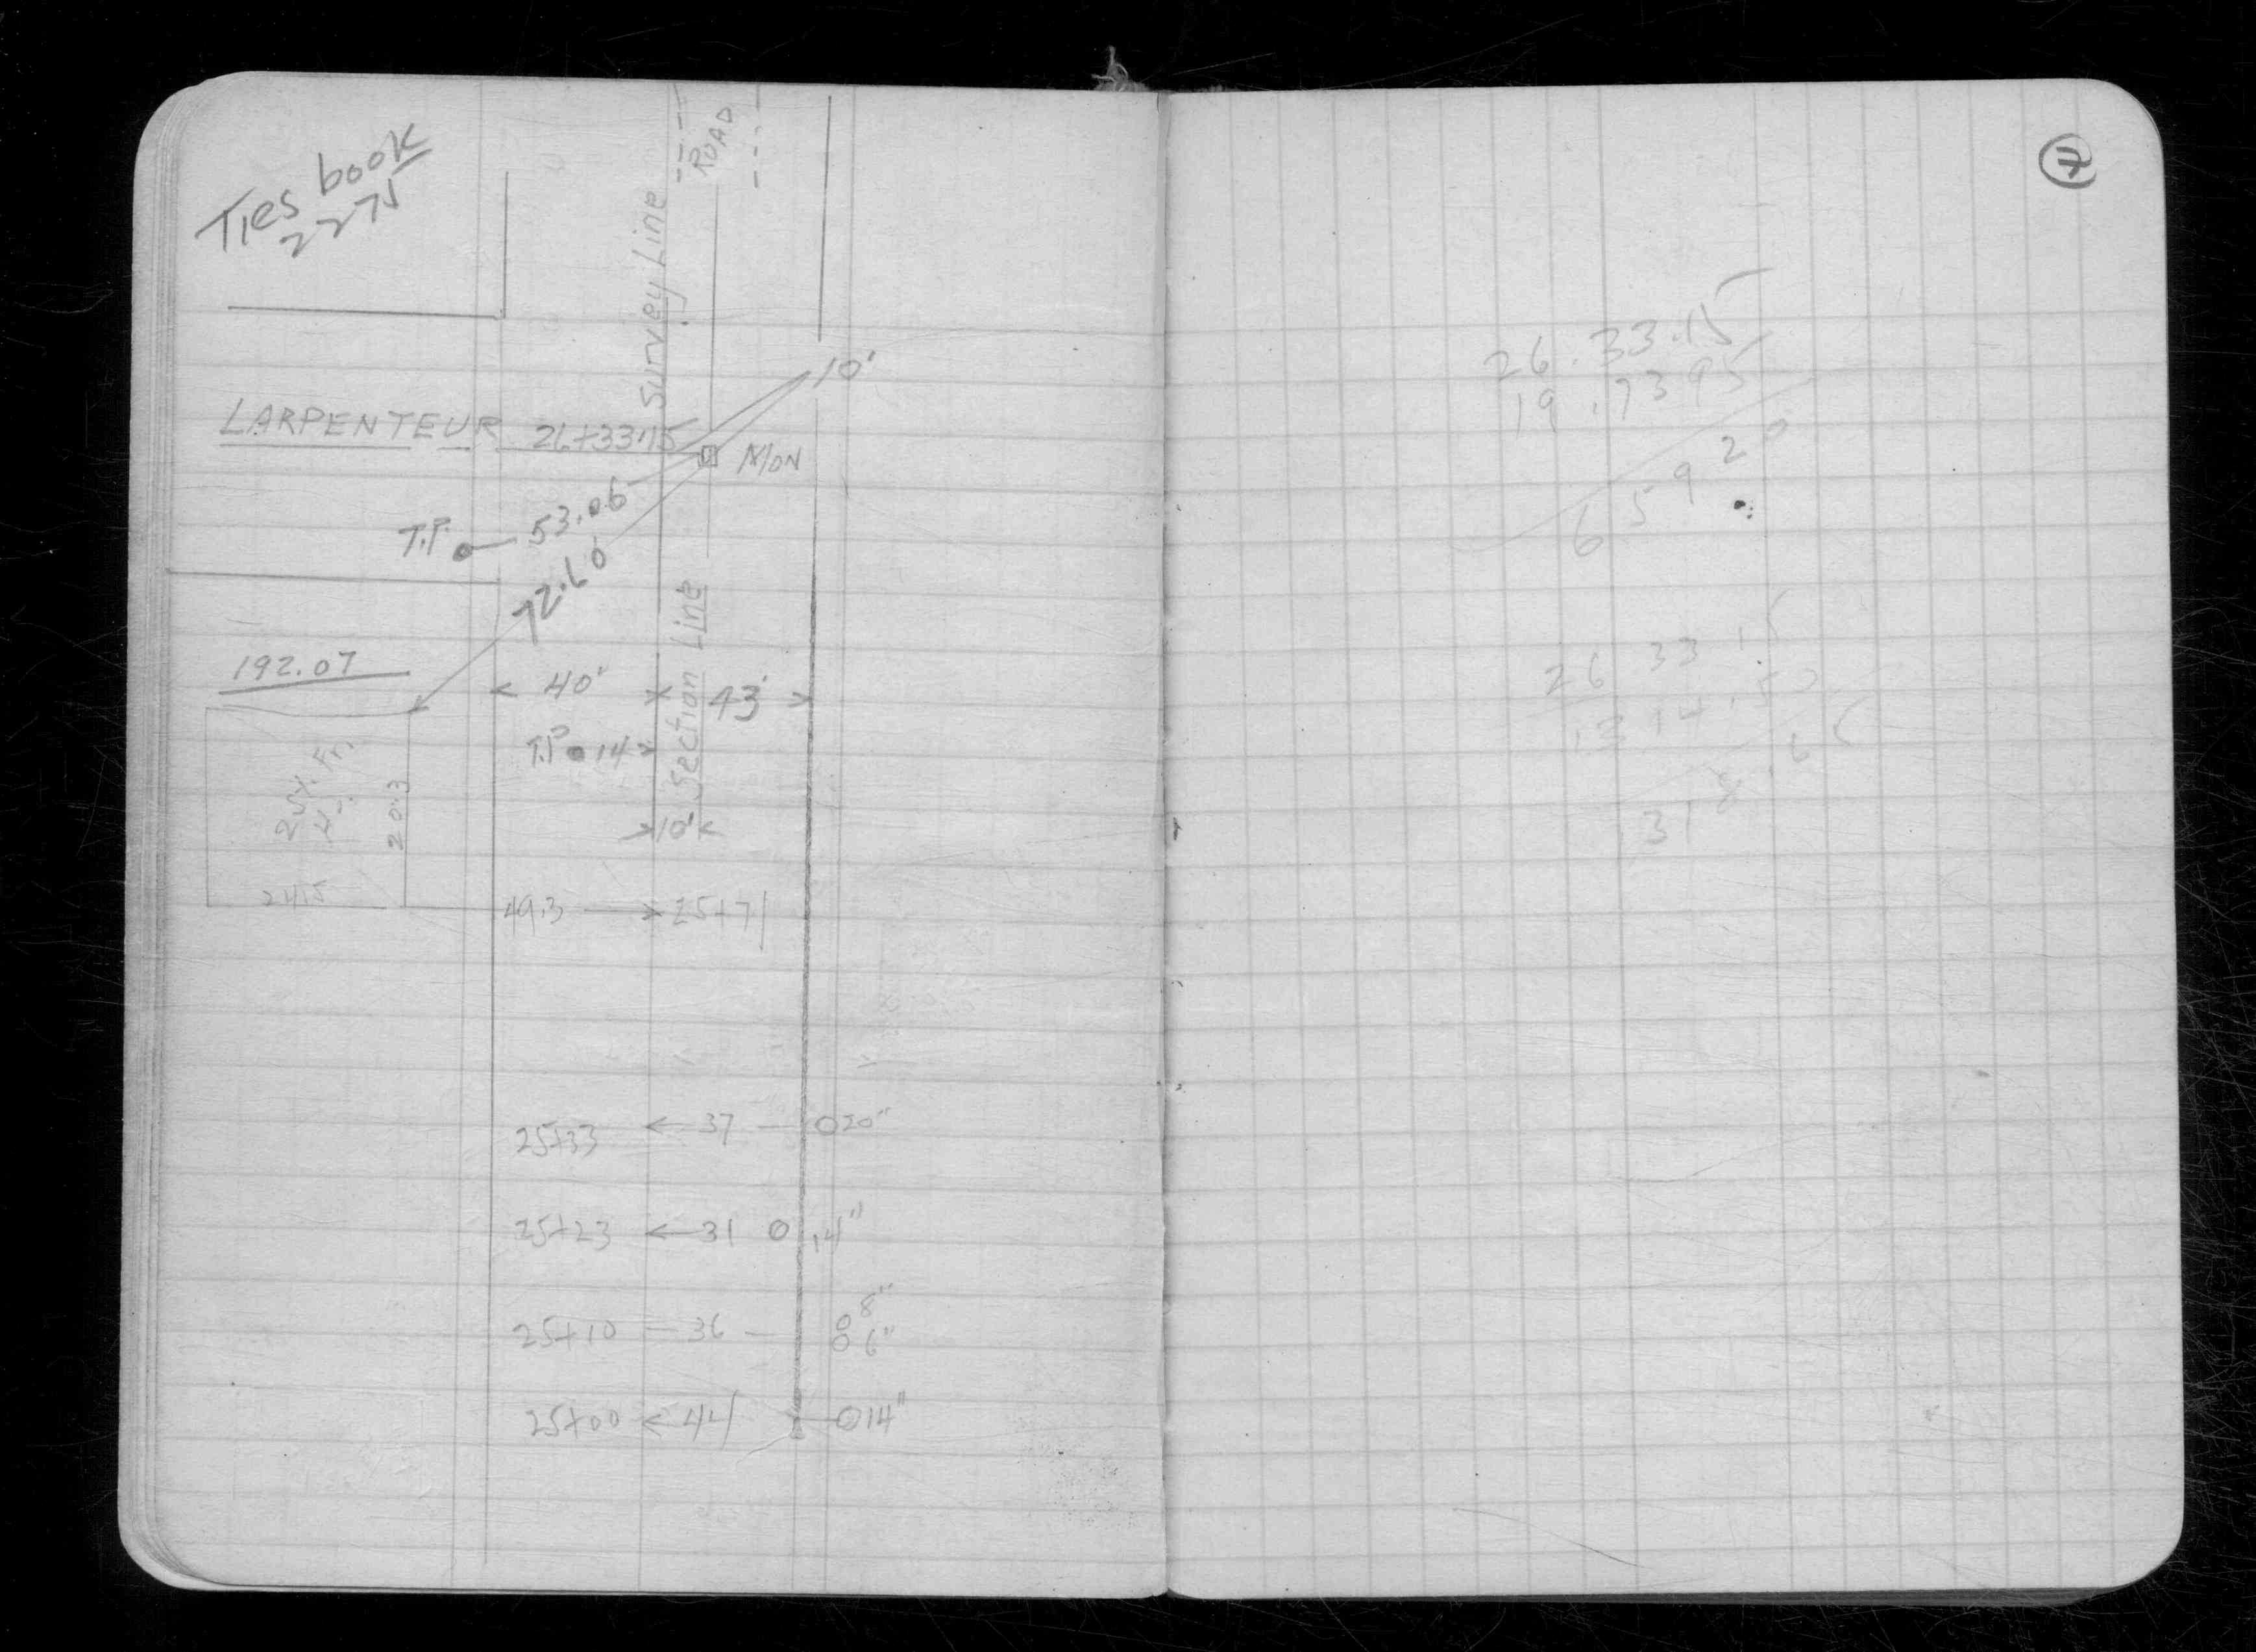 Ties book
2275
ROAD
Survey Line
10'
LARPENTEUR 26+33.15
MON
T.P. 53.06
72.60
Section Line
192.07
40' 43'
T.P 14
2 St. Fr.
20.3
10'
24.5
49.3 25+71
25+33 37 20"
25+23 31 14"
8"
25+10 36 6"
25+00 44 14"
4
26.33.15
19.7395
65920
26 33 15
318.65